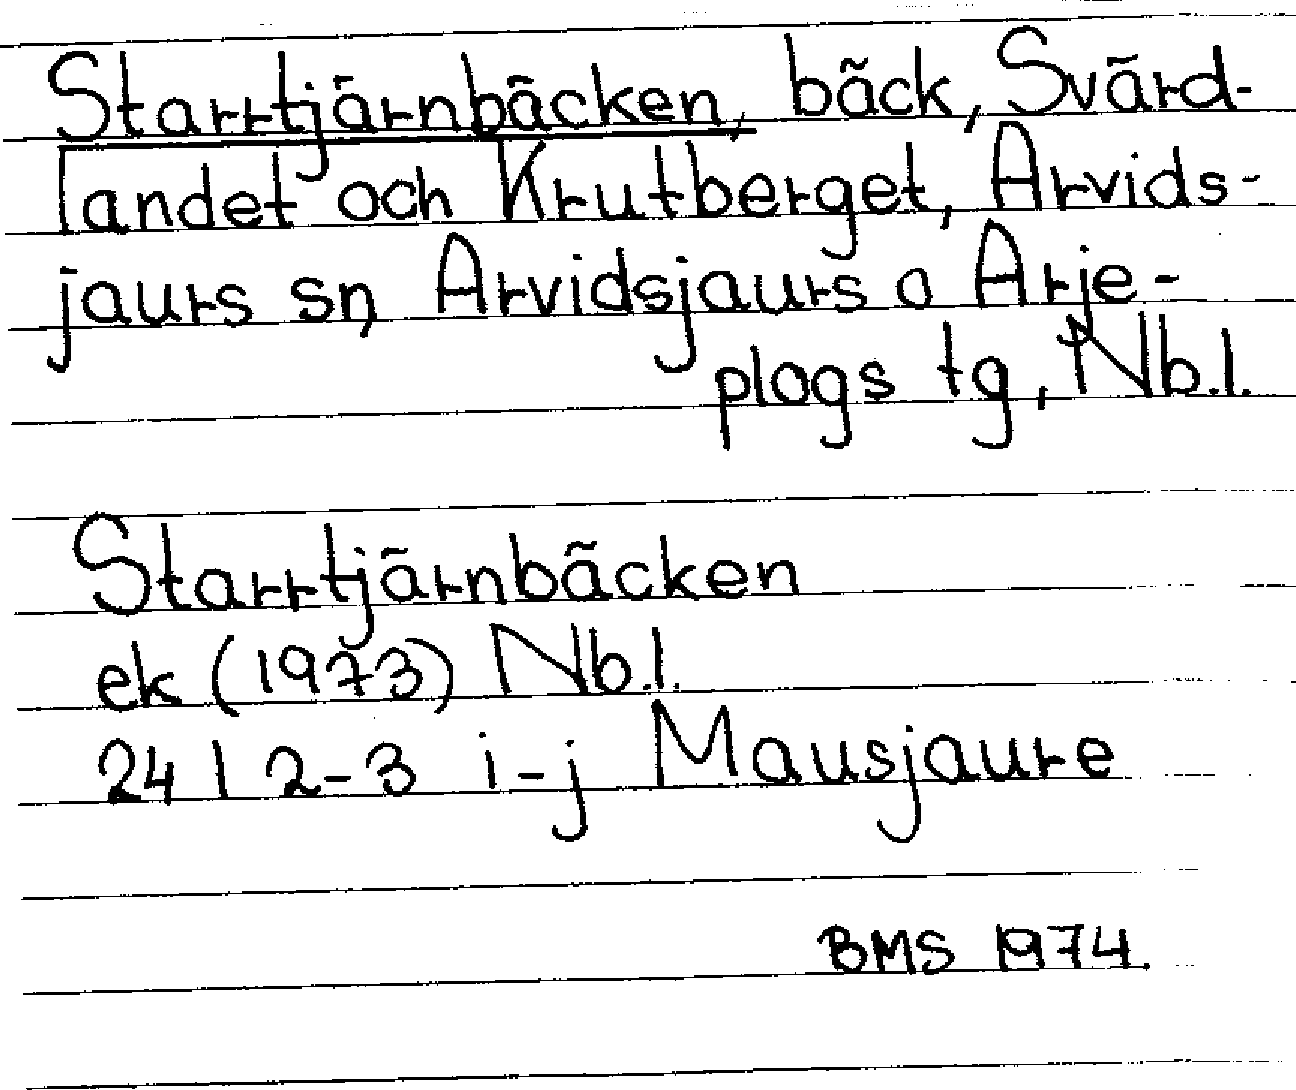 Starrtjärnbäcken, bäck, Svärd-
landet och Krutberget, Arvids-
jaurs sn, Arvidsjaurs o Arje-
plogs tg, Nb.l.
Starrtjärnbäcken
ek (1973) Nb.l.
24 I 2-3 i-j Mausjaure
BMS 1974.